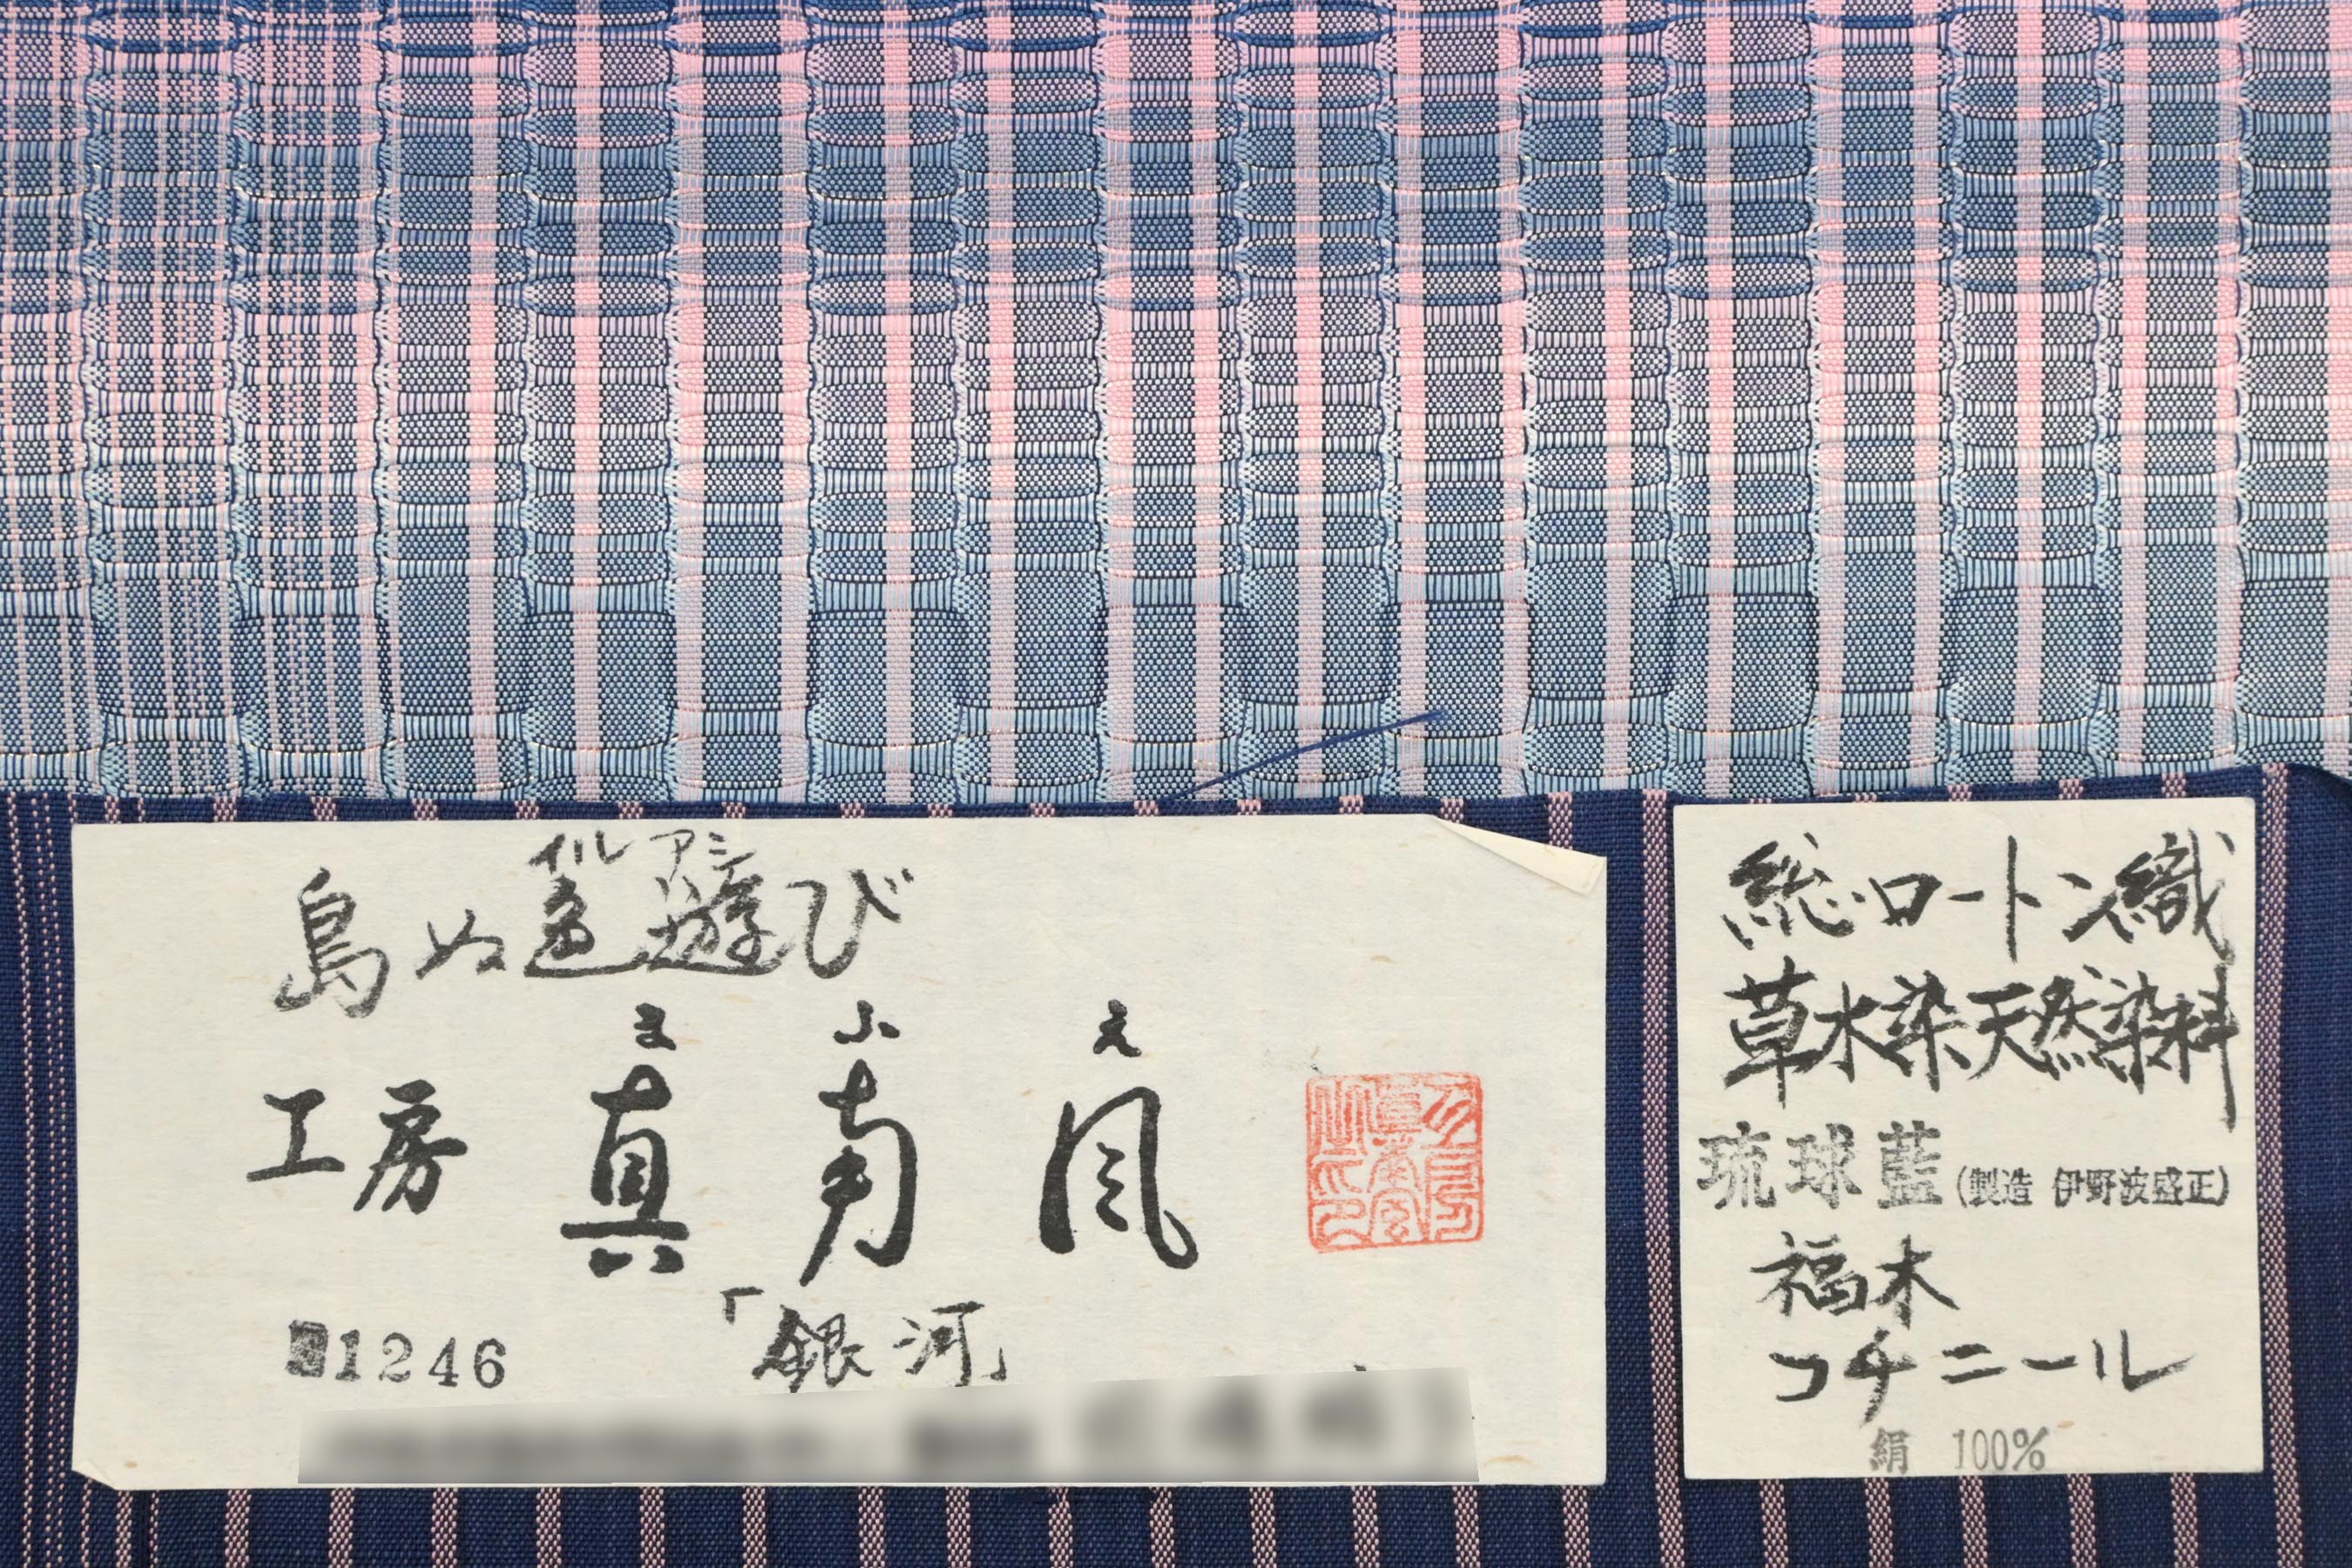 イルアシ
島ぬ色遊び
まふえ
工房 真南風
「銀河」
1246
総ロートン織
草木染天然染料
琉球藍(製造 伊野波盛正)
福木
コチニール
絹 100%